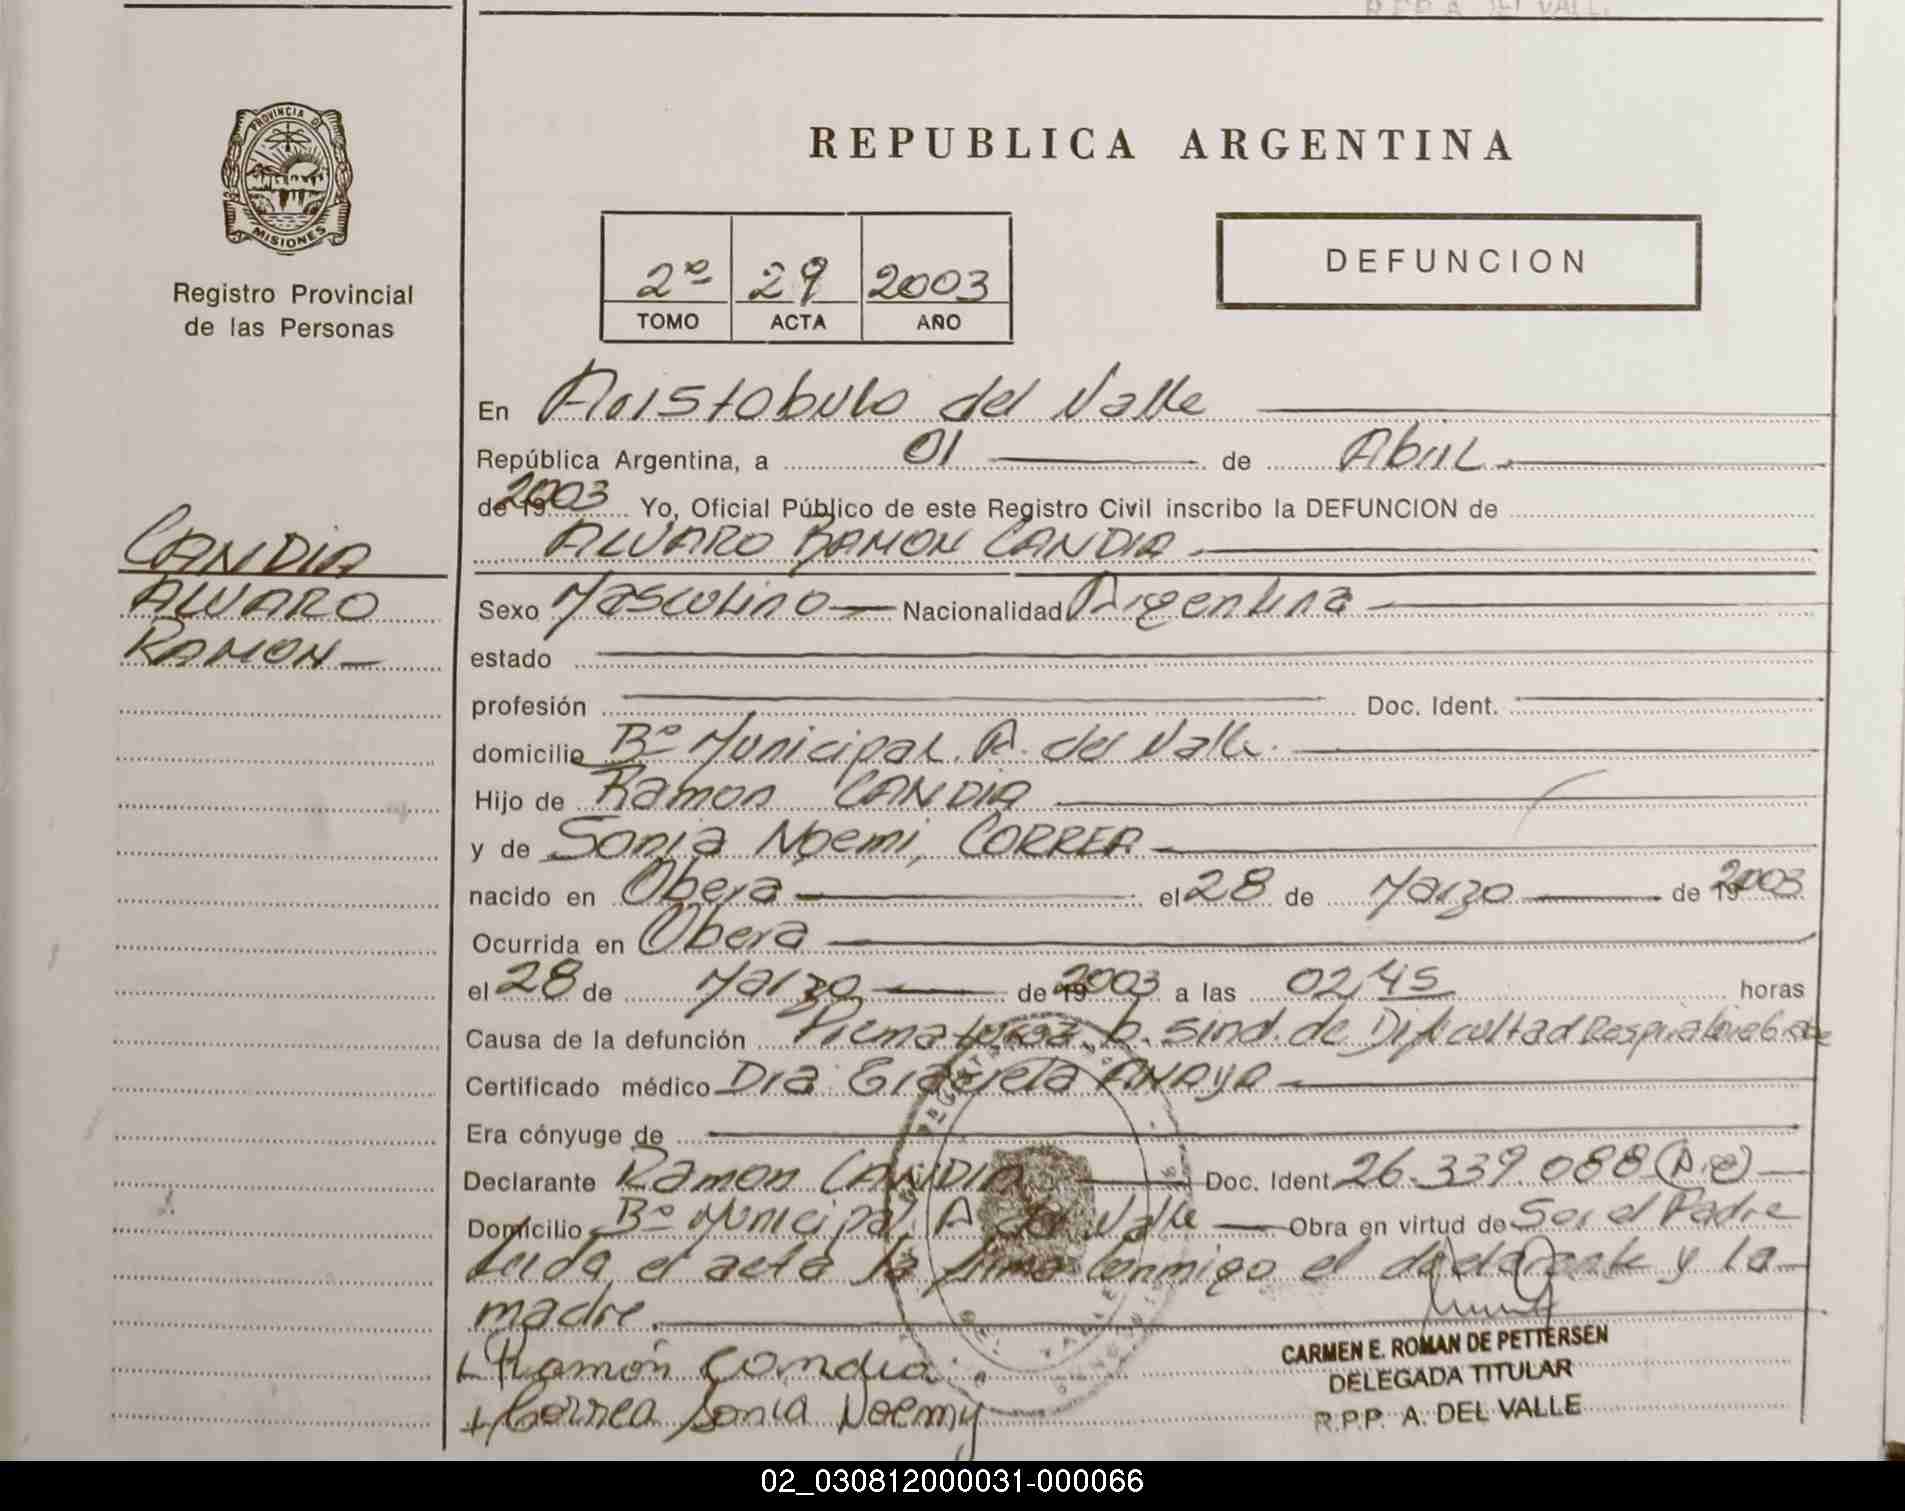 R.P.P. A. DEL VALLE
PROVINCIA D
MISIONES
Registro Provincial
de las Personas
REPUBLICA ARGENTINA
2º 29 2003
TOMO ACTA AÑO
DEFUNCION
En Aristobulo del Valle
República Argentina, a 01 de Abril
de 19 2003 Yo, Oficial Público de este Registro Civil inscribo la DEFUNCION de
ALVARO RAMON CANDIA
CANDIA
ALVARO
RAMON
Sexo Masculino Nacionalidad Argentina
estado
profesión Doc. Ident.
domicilio Bº Municipal. A. del Valle.
Hijo de Ramon CANDIA
y de Sonia Noemi, CORREA
nacido en Obera el 28 de Marzo de 19 2003
Ocurrida en Obera
el 28 de Marzo de 19 2003 a las 02,45 horas
Causa de la defunción Prematurez b. sind. de Dificultad Respiratoria Grave
Certificado médico Dra Graciela ANAYA
Era cónyuge de
Declarante Ramon CANDIA Doc. Ident. 26.339.088
Domicilio Bº Municipal. A del Valle Obra en virtud de Ser el Padre
Leida el acta la firma conmigo el declarante y la
madre.
Ramón Candia
Correa Sonia Noemy
CARMEN E. ROMAN DE PETTERSEN
DELEGADA TITULAR
R.P.P. A. DEL VALLE
02_030812000031-000066